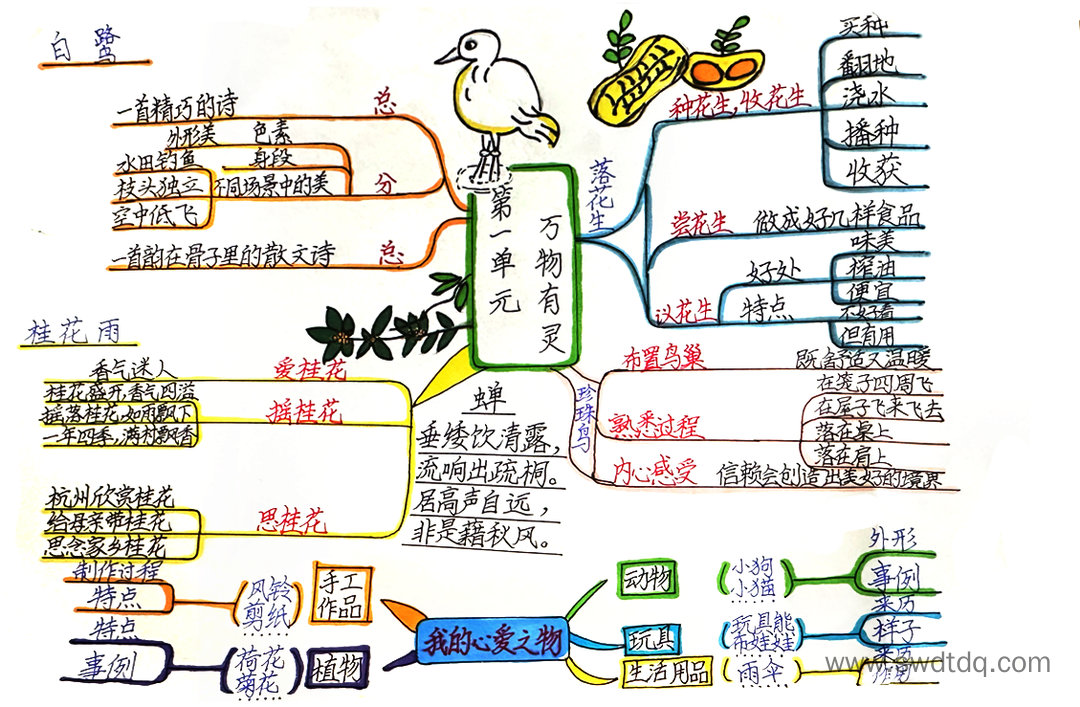 白鹭
一首精巧的诗
总
外形美
色素
身段
水田钓鱼
枝头独立
空中低飞
不同场景中的美
分
一首韵在骨子里的散文诗
总
第一单元
万物有灵
落花生
种花生,收花生
买种
翻地
浇水
播种
收获
尝花生
做成好几样食品
议花生
好处
味美
榨油
便宜
特点
不好看
但有用
桂花雨
香气迷人
爱桂花
桂花盛开,香气四溢
摇落桂花,如雨飘下
一年四季,满村飘香
摇桂花
杭州欣赏桂花
给母亲带桂花
思念家乡桂花
思桂花
蝉
垂緌饮清露,
流响出疏桐。
居高声自远,
非是藉秋风。
珍珠鸟
布置鸟巢
既舒适又温暖
熟悉过程
在笼子四周飞
在屋子飞来飞去
落在桌上
落在肩上
内心感受
信赖会创造出美好的境界
我的心爱之物
手工作品
风铃
剪纸
制作过程
特点
植物
荷花
菊花
特点
事例
动物
小狗
小猫
外形
事例
玩具
玩具熊
布娃娃
来历
样子
生活用品
雨伞
来历
作用